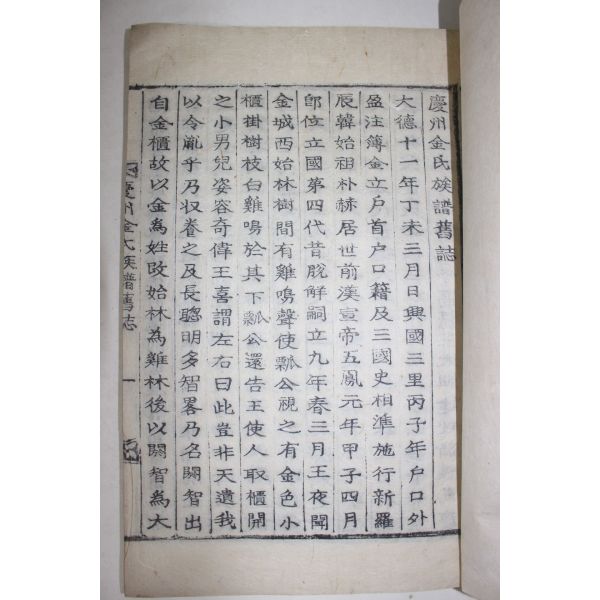 慶州金氏族譜舊誌
大德十一年丁未三月日興國三里丙子年戶口外
盈注簿金立戶首戶口籍及三國史相準施行新羅
辰韓始祖朴赫居世前漢宣帝五鳳元年甲子四月
卽位立國第四代昔脫解嗣立九年春三月王夜聞
金城西始林樹間有雞鳴聲使瓢公視之有金色小
櫃掛樹枝白雞鳴於其下瓢公還告王使人取櫃開
之小男兒姿容奇偉王喜謂左右曰此豈非天遺我
以令胤乎乃収養之及長聰明多智畧乃名閼智出
自金櫃故以金爲姓改始林爲雞林後以閼智爲大
慶州金氏族譜舊誌 一